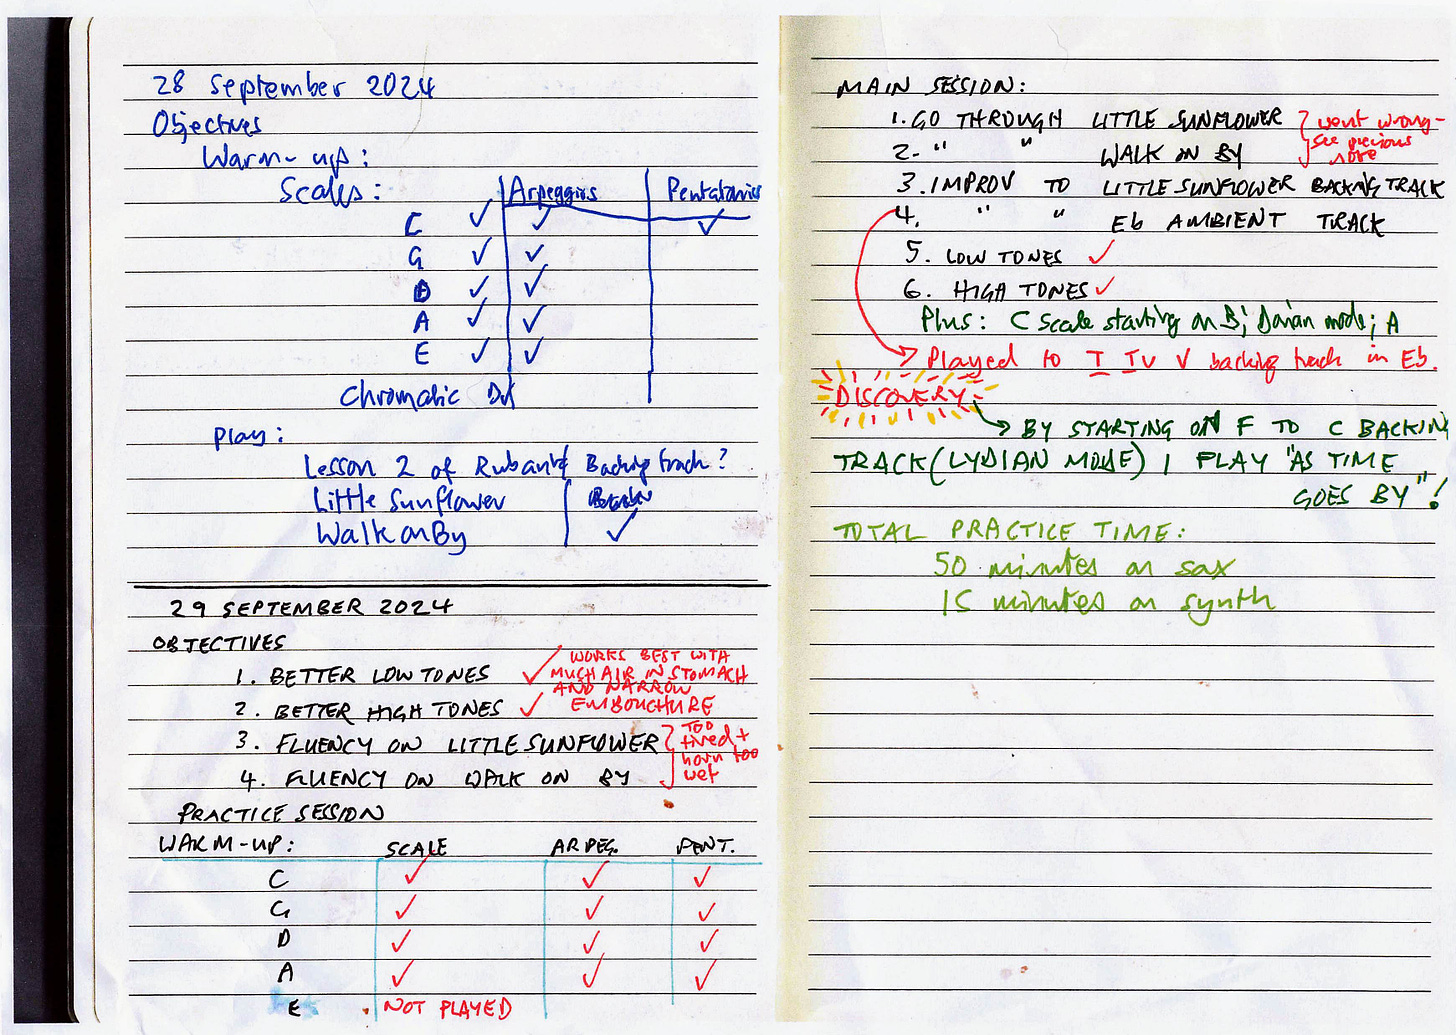 28 September 2024
Objectives
Warm-up:
Scales: Arpeggios Pentatonics
C ✓ ✓ ✓
G ✓ ✓
D ✓ ✓
A ✓ ✓
E ✓ ✓
Chromatic
Play:
Lesson 2 of Rubank Backing track?
Little Sunflower
Walk on By ✓
29 SEPTEMBER 2024
OBJECTIVES
1. BETTER LOW TONES ✓
2. BETTER HIGH TONES ✓
WORKS BEST WITH
MUCH AIR IN STOMACH
AND NARROW
EMBOUCHURE
3. FLUENCY ON LITTLE SUNFLOWER
4. FLUENCY ON WALK ON BY
TOO
tired +
horn too
wet
PRACTICE SESSION
WARM-UP: SCALE ARPEG. PENT.
C ✓ ✓ ✓
G ✓ ✓ ✓
D ✓ ✓ ✓
A ✓ ✓ ✓
E NOT PLAYED
MAIN SESSION:
1. GO THROUGH LITTLE SUNFLOWER
2. " " WALK ON BY
went wrong-
see previous
note
3. IMPROV TO LITTLE SUNFLOWER BACKING TRACK
4. " " Eb AMBIENT TRACK
5. LOW TONES ✓
6. HIGH TONES ✓
Plus: C scale starting on B; Dorian mode; A
Played to I IV V backing track in Eb.
DISCOVERY
BY STARTING ON F TO C BACKING
TRACK (LYDIAN MODE) I PLAY "AS TIME
GOES BY"!
TOTAL PRACTICE TIME:
50 minutes on sax
15 minutes on synth